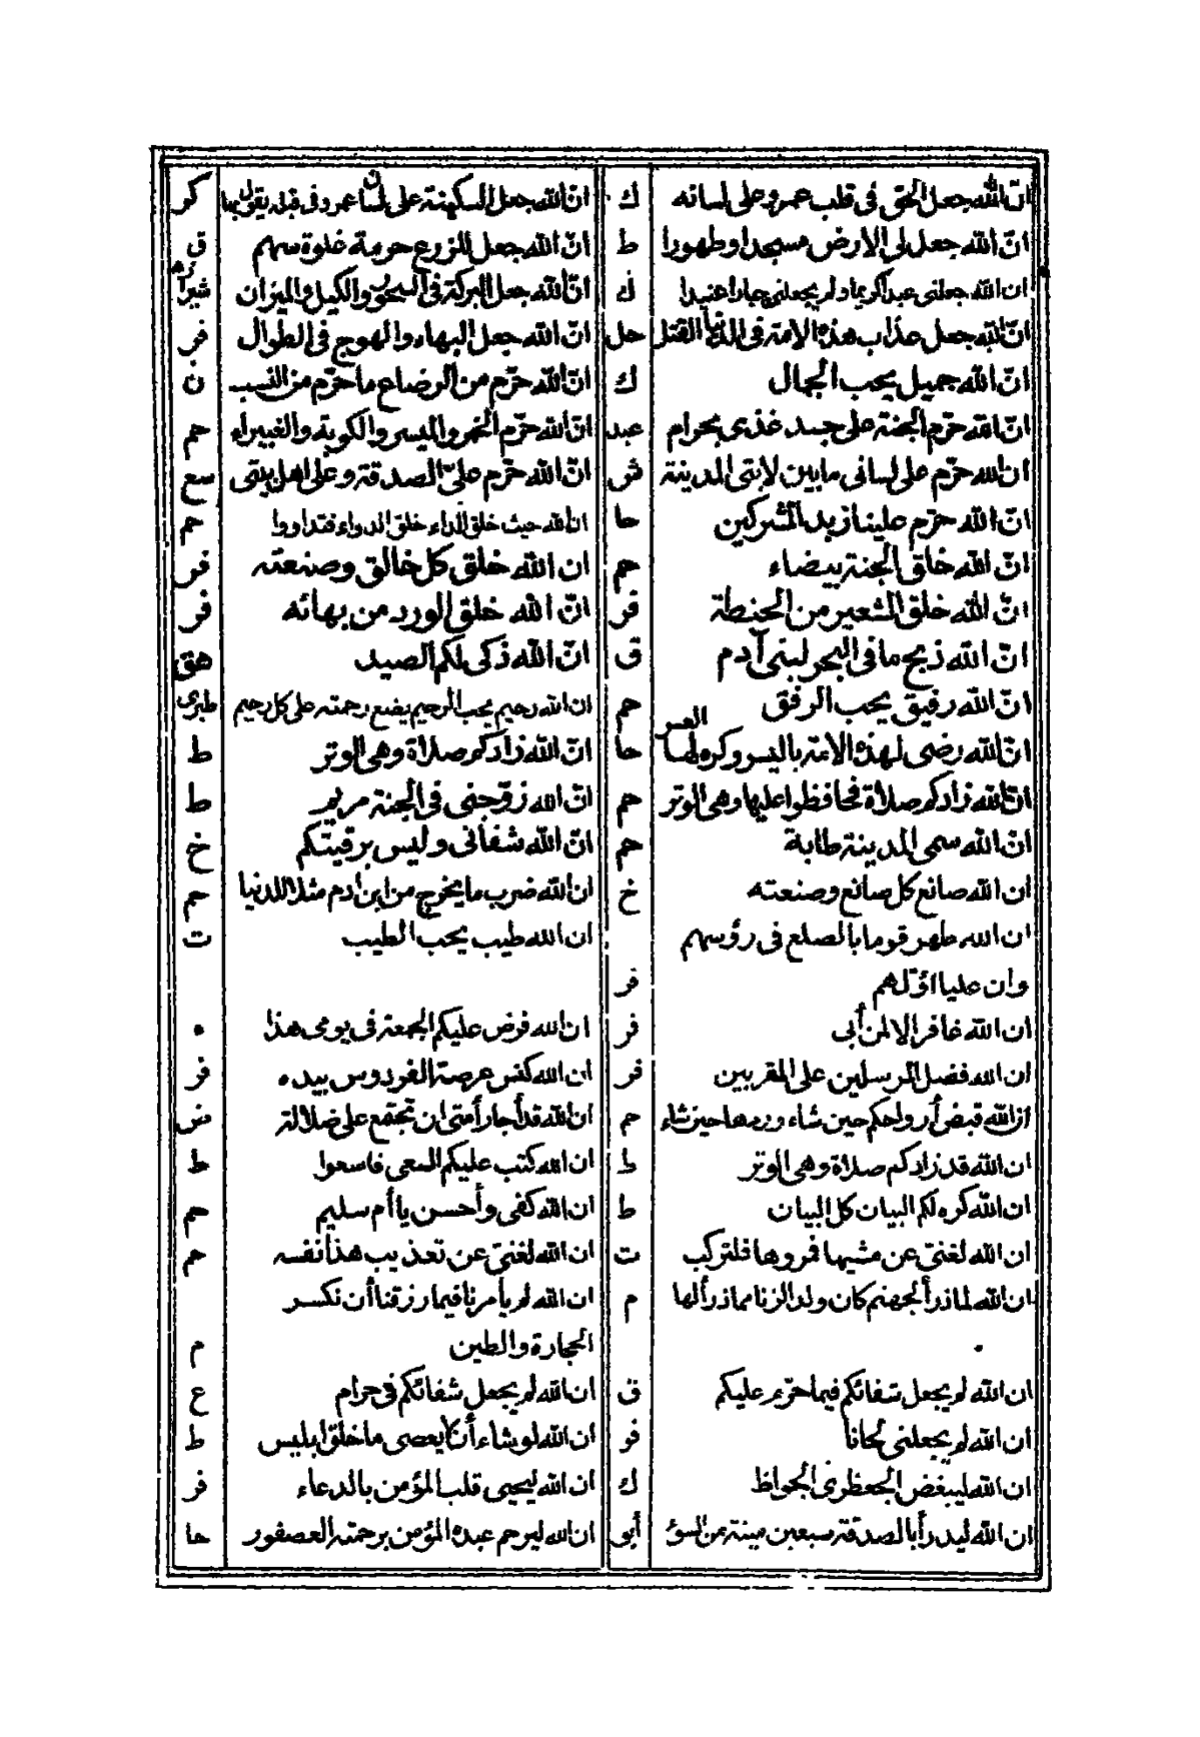 انّ الله جعل الحق فى قلب عمر وعلى لسانه ك
انّ الله جعل السكينة على لسان عمر وفى قلبه يقول بها كر
انّ الله جعل لى الارض مسجدا وطهورا ط
انّ الله جعل للزرع حرمة غلوة سهم ق
ان الله جعلنى عبدا كريما ولم يجعلنى جبارا عنيدا ك
انّ الله جعل البركة فى السحور والكيل والميزان شيرازى
انّ الله جعل عذاب هذه الامة فى الدنيا القتل حل
انّ الله جعل البهاء والهوج فى الطوال فر
انّ الله جميل يحب الجمال ك
انّ الله حرّم من الرضاع ما حرّم من النسب ن
انّ الله حرّم الجنة على جسد غذى بحرام عبد
انّ الله حرّم الخمر والميسر والكوبة والغبيراء حم
ان الله حرّم على لسانى ما بين لابتى المدينة ش
انّ الله حرّم علىّ الصدقة وعلى اهل بيتى سع
انّ الله حرّم علينا زبد المشركين حا
ان الله حيث خلق الداء خلق الدواء فتداووا حم
انّ الله خلق الجنة بيضاء حم
ان الله خلق كل خالق وصنعته فر
انّ الله خلق الشعير من الحنطة فر
انّ الله خلق الورد من بهائه فر
انّ الله ذبح ما فى البحر لبنى آدم ق
انّ الله ذكى لكم الصيد هق
انّ الله رفيق يحب الرفق حم
ان الله رحيم يحب الرحيم يضع رحمته على كل رحيم طبرى
انّ الله رضى لهذه الامة باليسر وكره لها العسر حا
انّ الله زادكم صلاة وهى الوتر ط
انّ الله زادكم صلاة فحافظوا عليها وهى الوتر حم
انّ الله زوّجنى فى الجنة مريم ط
انّ الله سمى المدينة طابة حم
انّ الله شفانى وليس برقيتكم خ
ان الله صانع كل صانع وصنعته خ
ان الله ضرب ما يخرج من ابن ادم مثلا للدنيا حم
ان الله طهر قوما بالصلع فى رؤسهم
ان الله طيب يحب الطيب ت
وان عليا اوّلهم فر
ان الله غافر الا لمن أبى فر
ان الله فرض عليكم الجمعة فى يومى هذا ه
ان الله فضل المرسلين على المقربين فر
ان الله كنس عرصة الفردوس بيده فر
ان الله قبض أرواحكم حين شاء وردها حين شاء م
ان الله قد أجار أمتى ان تجتمع على ضلالة ض
ان الله قد زادكم صلاة وهى الوتر ط
ان الله كتب عليكم السعى فاسعوا ط
ان الله كره لكم البيان كل البيان ط
ان الله كفى وأحسن يا أم سليم حم
ان الله لغنىّ عن مشيها فمروها فلتركب ت
ان الله لغنىّ عن تعذيب هذا نفسه حم
ان الله لما ذرأ لجهنم كان ولد الزنا مما ذرأ لها م
ان الله لم يأمرنا فيما رزقنا أن نكسو
الحجارة والطين م
ان الله لم يجعل شفائكم فيما حرّم عليكم ق
ان الله لم يجعل شفائكم فى حرام ع
ان الله لم يجعلنى لحانا فر
ان الله لو شاء أن لا يعصى ما خلق ابليس ط
ان الله ليبغض الجعظرى الجواظ ك
ان الله ليحيى قلب المؤمن بالدعاء فر
ان الله ليدرأ بالصدقة سبعين ميتة من السؤ أبو
ان الله ليرحم عبده المؤمن برحمته العصفور حا